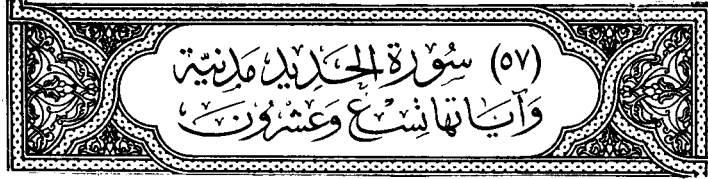 (٥٧) سُوْرَةُ الْحَدِيدِ مَدَنِيَّة
وَآيَاتُهَا تِسْعٌ وَعِشْرُونَ